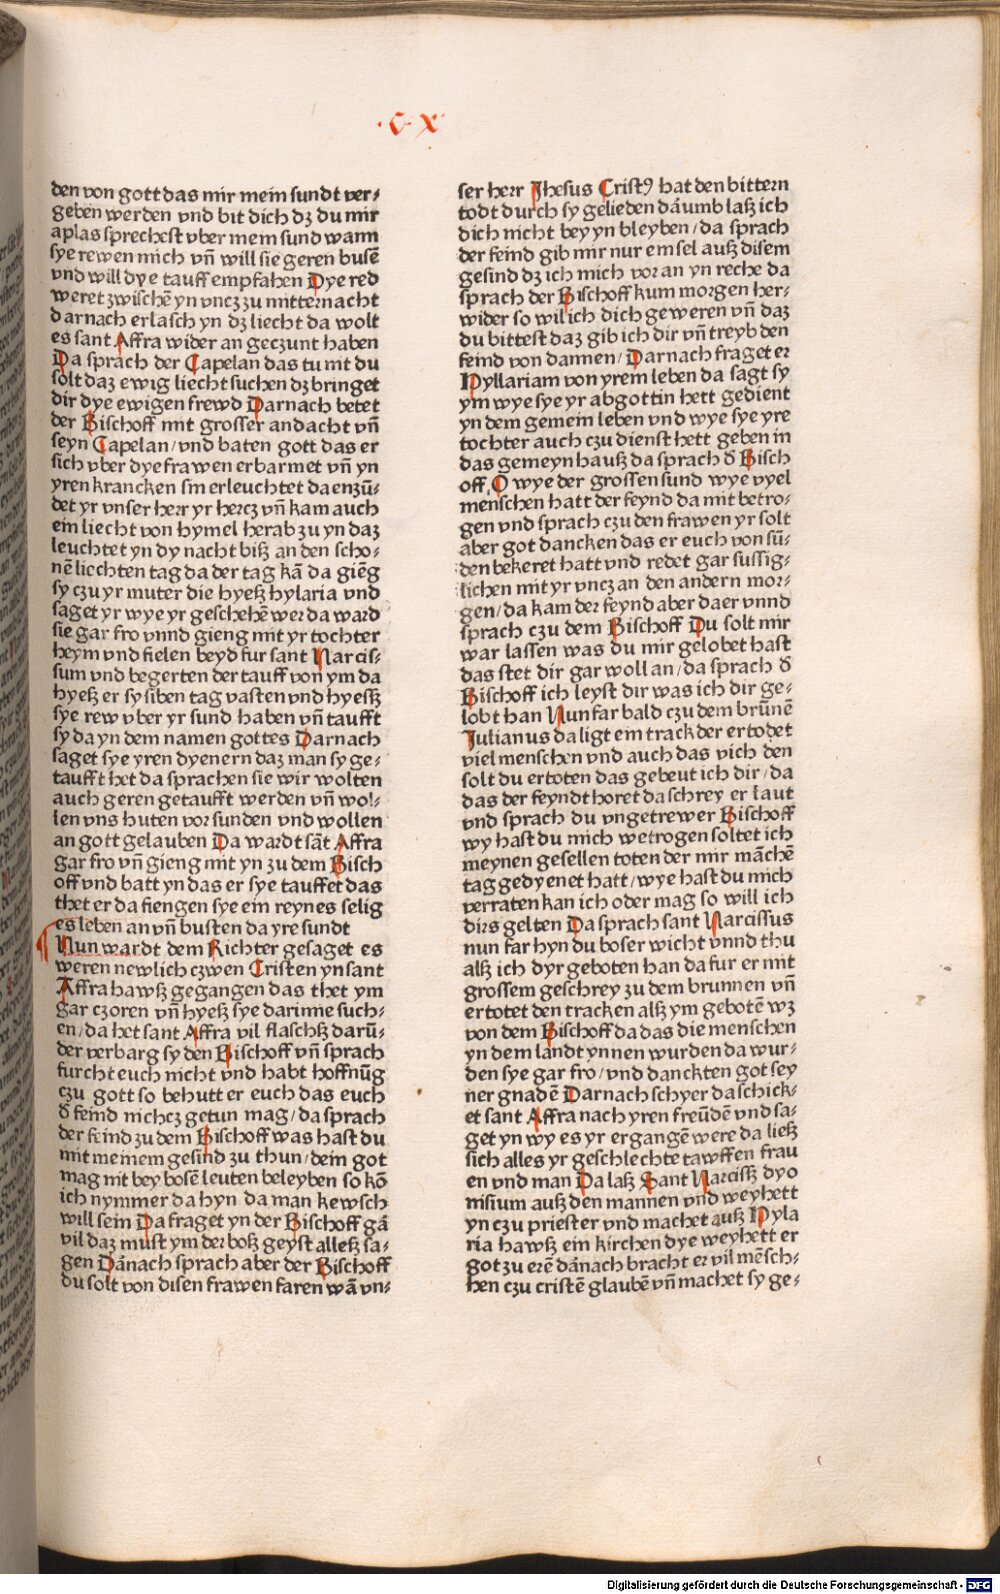 .c.x.
den von gott das mir mein sundt ver⸗
geben werden vnd bit dich dz du mir
aplas sprechest vber mein sund wann
sye rewen mich vñ will sie geren busē
vnd will dye tauff empfahen Dye red
weret zwischē yn vncz zu mitternacht
darnach erlasch yn dz liecht da wolt
es sant Affra wider an geczunt haben
Da sprach der Capelan das tu nit du
solt daz ewig liecht suchen dz bringet
dir dye ewigen frewd Darnach betet
der Bischoff mit grosser andacht vñ
seyn Capelan/vnd baten gott das er
sich vber dye frawen erbarmet vñ yn
yren krancken sin erleuchtet da enzū⸗
det yr vnser herr yr hercz vñ kam auch
ein liecht von hymel herab zu yn daz
leuchtet yn dy nacht biß an den scho⸗
nē liechten tag da der tag kā da giēg
sy czu yr muter die hyeß hylaria vnd
saget yr wye yr geschehē wer da ward
sie gar fro vnnd gieng mit yr tochter
heym vnd fielen beyd fur sant Narcis⸗
sum vnd begerten der tauff von ym da
hyeß er sy siben tag vasten vnd hyesß
sye rew vber yr sund haben vñ taufft
sy da yn dem namen gottes Darnach
saget sye yren dyenern daz man sy ge⸗
taufft het da sprachen sie wir wolten
auch geren getaufft werden vñ wol⸗
len vns huten vor sunden vnd wollen
an gott gelauben Da wardt sāt Affra
gar fro vñ gieng mit yn zu dem Bisch
off vnd batt yn das er sye tauffet das
thet er da fiengen sye ein reynes selig
es leben an vñ busten da yre sundt
Nun wardt dem Richter gesaget es
weren newlich czwen Cristen yn sant
Affra hawß gegangen das thet ym
gar czoren vñ hyeß sye darinne such⸗
en/da het sant Affra vil flaschß darū⸗
der verbarg sy den Bischoff vñ sprach
furcht euch nicht vnd habt hoffnūg
czu gott so behutt er euch das euch
đ feind nichcz getun mag/da sprach
der feind zu dem Bischoff was hast du
mit meinem gesind zu thun/dein got
mag nit bey bosē leuten beleyben so kō
ich nymmer da hyn da man kewsch
will sein Da fraget yn der Bischoff gā
vil daz must ym der boß geyst alleß sa⸗
gen Dānach sprach aber der Bischoff
du solt von disen frawen faren wā vn⸗
ser herr Jhesus Cristꝰ hat den bittern
todt durch sy gelieden dāumb laß ich
dich nicht bey yn bleyben/da sprach
der feind gib mir nur ein sel auß disem
gesind dz ich mich vor an yn reche da
sprach der Bischoff kum morgen her⸗
wider so wil ich dich geweren vñ daz
du bittest daz gib ich dir vñ treyb den
feind von dannen/Darnach fraget er
Hyllariam von yrem leben da sagt sy
ym wye sye yr abgottin hett gedient
yn dem gemein leben vnd wye sye yre
tochter auch czu dienst hett geben in
das gemeyn hauß da sprach đ Bisch
off. O wye der grossen sund wye vyel
menschen hatt der feynd da mit betro⸗
gen vnd sprach czu den frawen yr solt
aber got dancken das er euch von sū⸗
den bekeret hatt vnd redet gar sussig⸗
lichen mit yr vncz an den andern mor⸗
gen/da kam der feynd aber da er vnnd
sprach czu dem Bischoff Du solt mir
war lassen was du mir gelobet hast
das stet dir gar woll an/da sprach đ
Bischoff ich leyst dir was ich dir ge⸗
lobt han Nun far bald czu dem brūnē
Julianus da ligt ein track der ertodet
viel menschen vnd auch das vich den
solt du ertoten das gebeut ich dir/da
das der feyndt horet da schrey er laut
vnd sprach du vngetrewer Bischoff
wy hast du mich wetrogen soltet ich
meynen gesellen toten der mir māchē
tag gedyenet hatt/wye hast du mich
verraten kan ich oder mag so will ich
dirs gelten Da sprach sant Narcissus
nun far hyn du boser wicht vnnd thu
alß ich dyr geboten han da fur er mit
grossem geschrey zu dem brunnen vñ
ertotet den tracken alß ym gebotē wz
von dem Bischoff da das die menschen
yn dem landt ynnen wurden da wur⸗
den sye gar fro/vnd danckten got sey
ner gnadē Darnach schyer da schick⸗
et sant Affra nach yren freūdē vnd sa⸗
get yn wy es yr ergangē were da ließ
sich alles yr geschlechte tawffen frau
en vnd man Da laß Sant Narcisß dyo
nisium auß den mannen vnd weyhett
yn czu priester vnd machet auß Hyla
ria hawß ein kirchen dye weyhett er
got zu erē dānach bracht er vil mēsch⸗
hen czu cristē glaubē vñ machet sy ge⸗
Digitalisierung gefördert durch die Deutsche Forschungsgemeinschaft - DFG